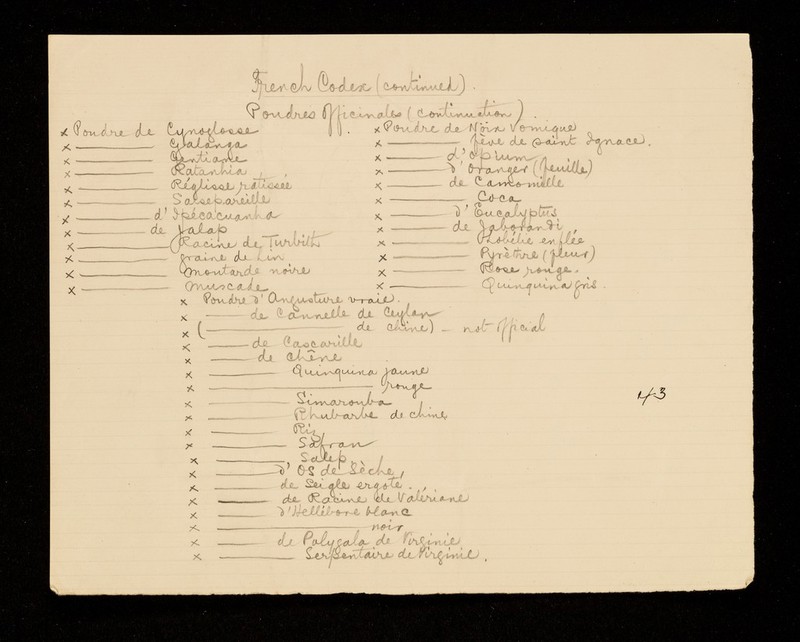 French Codex (continued).
Poudres Officinales (continuation).
x Poudre de Cynoglosse
x ——— Galanga
x ——— Gentiane
x ——— Ratanhia
x ——— Réglisse ratissée
x ——— Salsepareille
x ——— d'Ipécacuanha
x ——— de Jalap
x ——— Racine de Turbith
x ——— graine de Lin
x ——— Moutarde noire
x ——— Muscade
x Poudre de Noix Vomique
x ——— fève de Saint Ignace.
x ——— d'Opium
x ——— d'Oranger (feuille)
x ——— de Camomille
x ——— Coca
x ——— d'Eucalyptus
x ——— de Jaborandi
x ——— Lobélie enflée
x ——— Pyrèthre (fleur)
x ——— Rose rouge.
x ——— Quinquina gris.
x Poudre d'Angusture vraie.
x ——— de Cannelle de Ceylan
x (——— de chine) — not official
x ——— de Cascarille
x ——— de chêne
x ——— Quinquina jaune
x ——— rouge
x ——— Simarouba
x ——— Rhubarbe de chine
x ——— Riz
x ——— Safran
x ——— Salep
x ——— d'OS de Sèche,
x ——— de Seigle ergoté.
x ——— de Racine de Valériane
x ——— d'Hellébore blanc
x ——— noir
x ——— de Polygala de Virginie
x ——— Serpentaire de Virginie.
43